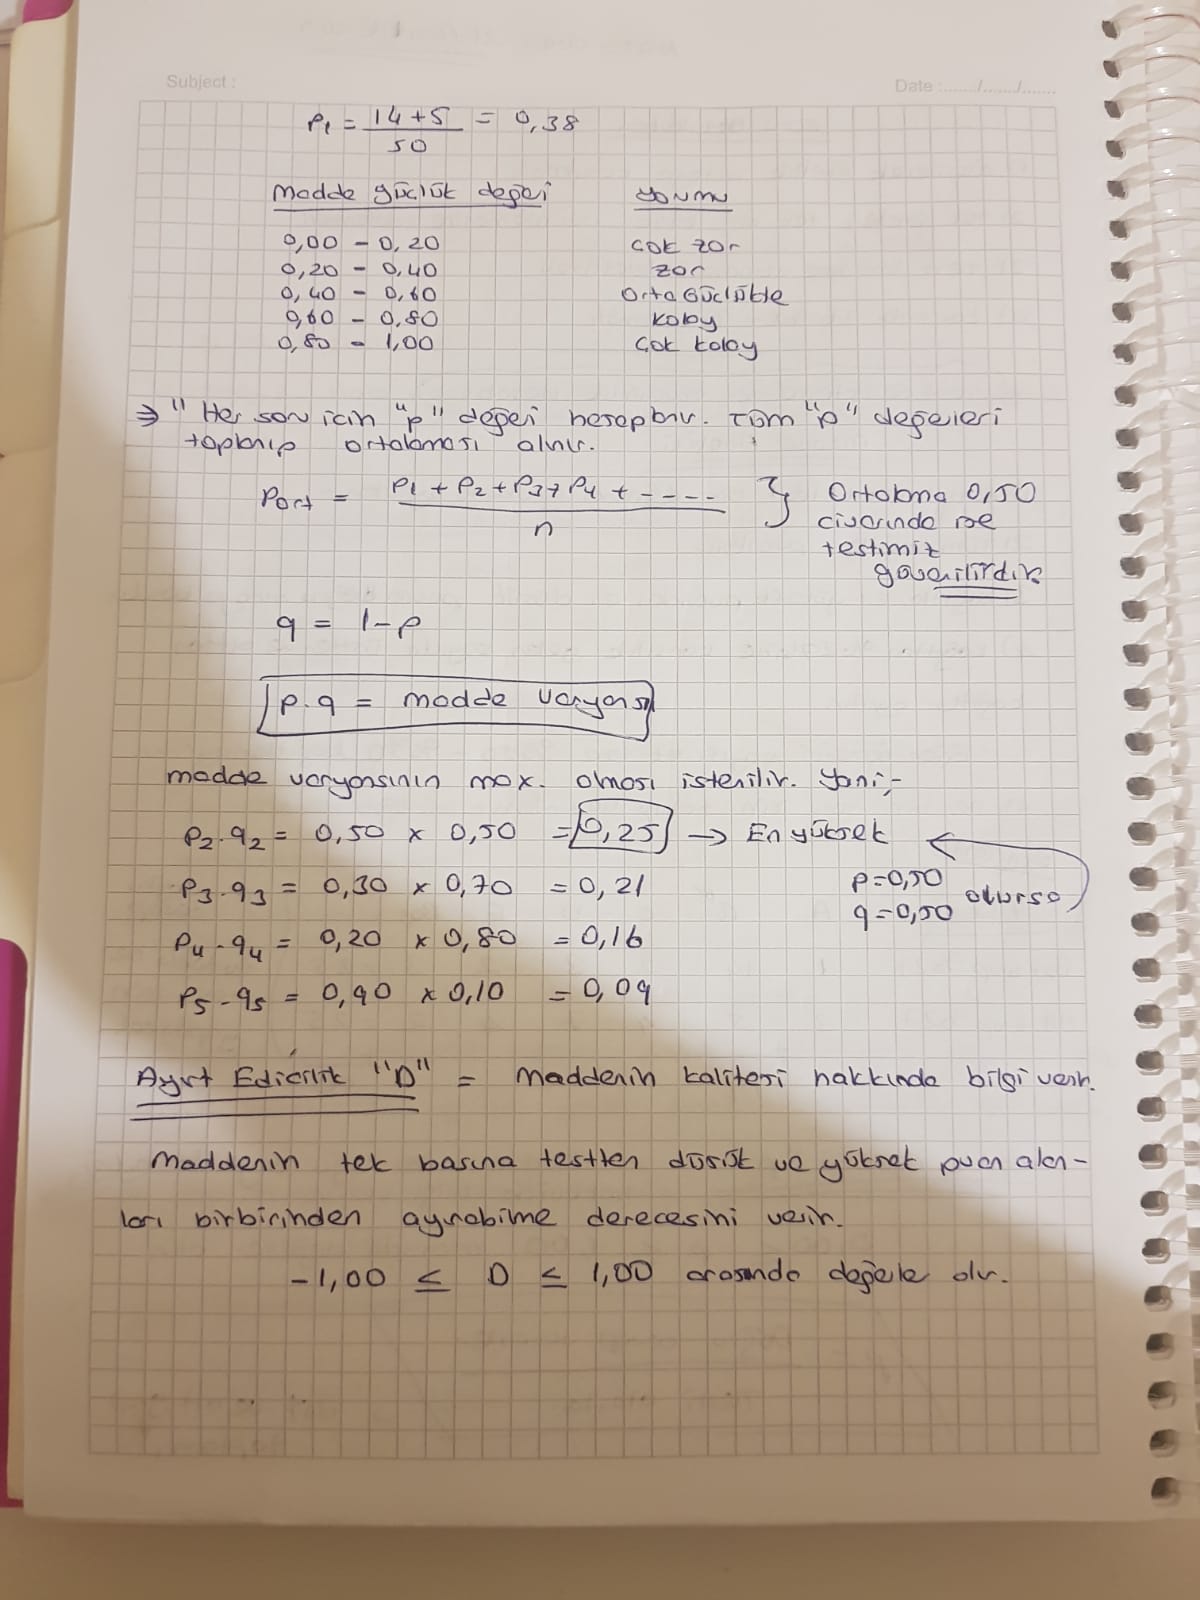 Subject :
Date :......./......./.......
P1 = 14+5 / 50 = 0,38
Madde güçlük değeri   Yorumu
0,00 - 0,20   Çok zor
0,20 - 0,40   zor
0,40 - 0,60   Orta Güçlükte
0,60 - 0,80   Kolay
0,80 - 1,00   Çok kolay
⇒ " Her soru için "p" değeri hesaplanır. Tüm "p" değerleri
toplanıp ortalaması alınır.
Port = P1 + P2 + P3 + P4 + ---- / n } Ortalama 0,50
civarında ise
testimiz
güvenilirdir
q = 1-p
p.q = madde varyansı
madde varyansının max. olması istenilir. Yani;-
P2.q2 = 0,50 x 0,50 = 0,25 → En yüksek
P3.q3 = 0,30 x 0,70 = 0,21   p=0,50
q=0,50 olursa
P4-q4 = 0,20 x 0,80 = 0,16
P5-q5 = 0,90 x 0,10 = 0,09
Ayırt Edicilik "D" = Maddenin kalitesi hakkında bilgi verir.
Maddenin tek başına testten düşük ve yüksek puan alan-
ları birbirinden ayırabilme derecesini verir.
-1,00 ≤ D ≤ 1,00 arasında değerler alır.